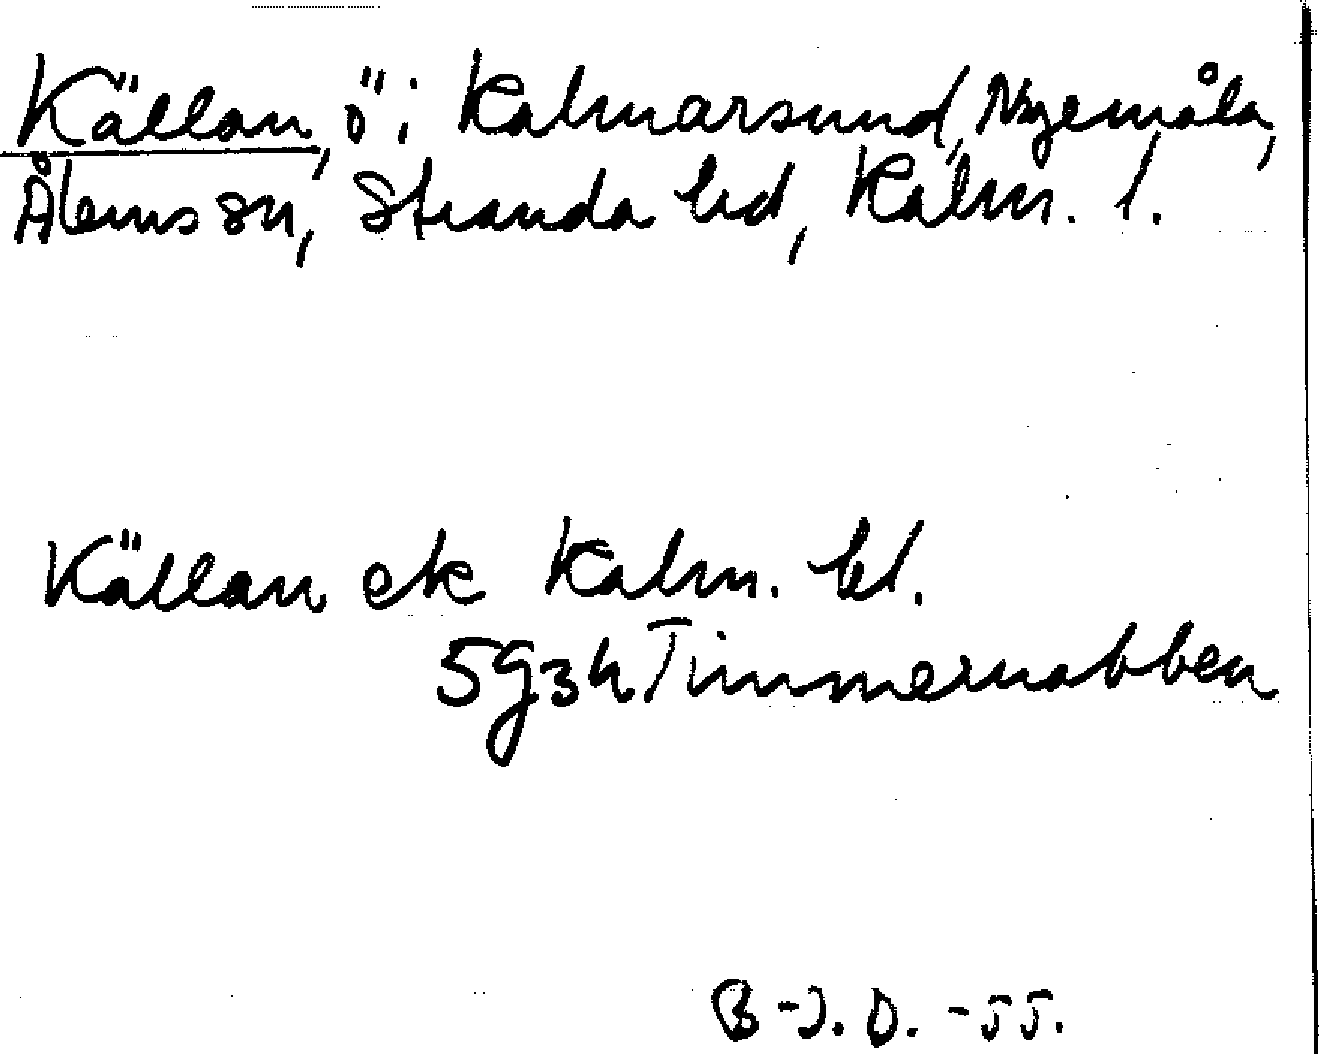 Källan, ö i Kalmarsund, Nyemåla,
Ålems sn, Stranda hd, Kalm. l.
Källan ek Kalm. bl.
5g3h Timmernabben
B-J. D. -55.